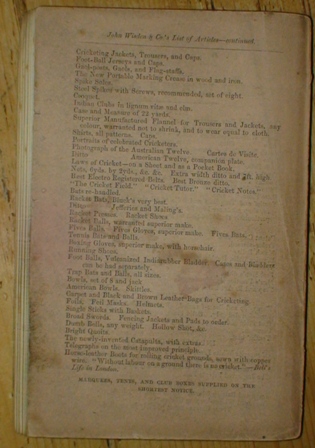 John Wisden & Co's List of Articles—continued
Cricketing Jackets, Trousers, and Caps.
Foot-Ball Jerseys and Caps.
Goal-posts, Goals, and Flag-staffs.
The New Portable Marking Crease in wood and iron.
Spike Soles.
Steel Spikes with Screws, recommended, set of eight.
Croquet.
Indian Clubs in lignum vitæ and elm.
Case and Measure of 22 yards.
Superior Manufactured Flannel for Trousers and Jackets, any
colour, warranted not to shrink, and to wear equal to cloth.
Shirts, all patterns. Caps.
Portraits of celebrated Cricketers.
Photograph of the Australian Twelve. Cartes de Visite.
Ditto American Twelve, companion plate.
Laws of Cricket—on a Sheet and as a Pocket Book.
Nets, 6yds. by 2yds., &c. &c. Extra width ditto and high.
Best Electro Registered Belts. Best Bronze ditto.
"The Cricket Field." "Cricket Tutor." "Cricket Notes."
Bats re-handled.
Racket Bats, very best.
Ditto Jefferies and Maling's.
Racket Presses. Racket Shoes.
Racket Balls, warranted superior make.
Fives Balls. Fives Gloves, superior make. Fives Bats.
Tennis Bats and Balls.
Boxing Gloves, superior make, with horsehair.
Running Shoes.
Foot Balls, Vulcanized Indiarubber Bladder. Cases and Bladders
can be had separately.
Trap Bats and Balls, all sizes.
Bowls, set of 8 and jack
American Bowls. Skittles.
Carpet and Black and Brown Leather Bags for Cricketing
Foils. Foil Masks. Helmets.
Single Sticks with Baskets.
Broad Swords. Fencing Jackets and Pads to order.
Dumb Bells, any weight. Hollow Shot, &c.
Bright Quoits.
The newly-invented Catapulta, with extras.
Telegraphs on the most improved principle.
Horse-leather Boots for rolling cricket grounds, sewn with copper
wire. "Without labour on a ground there is no cricket."—Bell's
Life in London.
MARQUEES, TENTS, AND CLUB BOXES SUPPLIED ON THE
SHORTEST NOTICE.